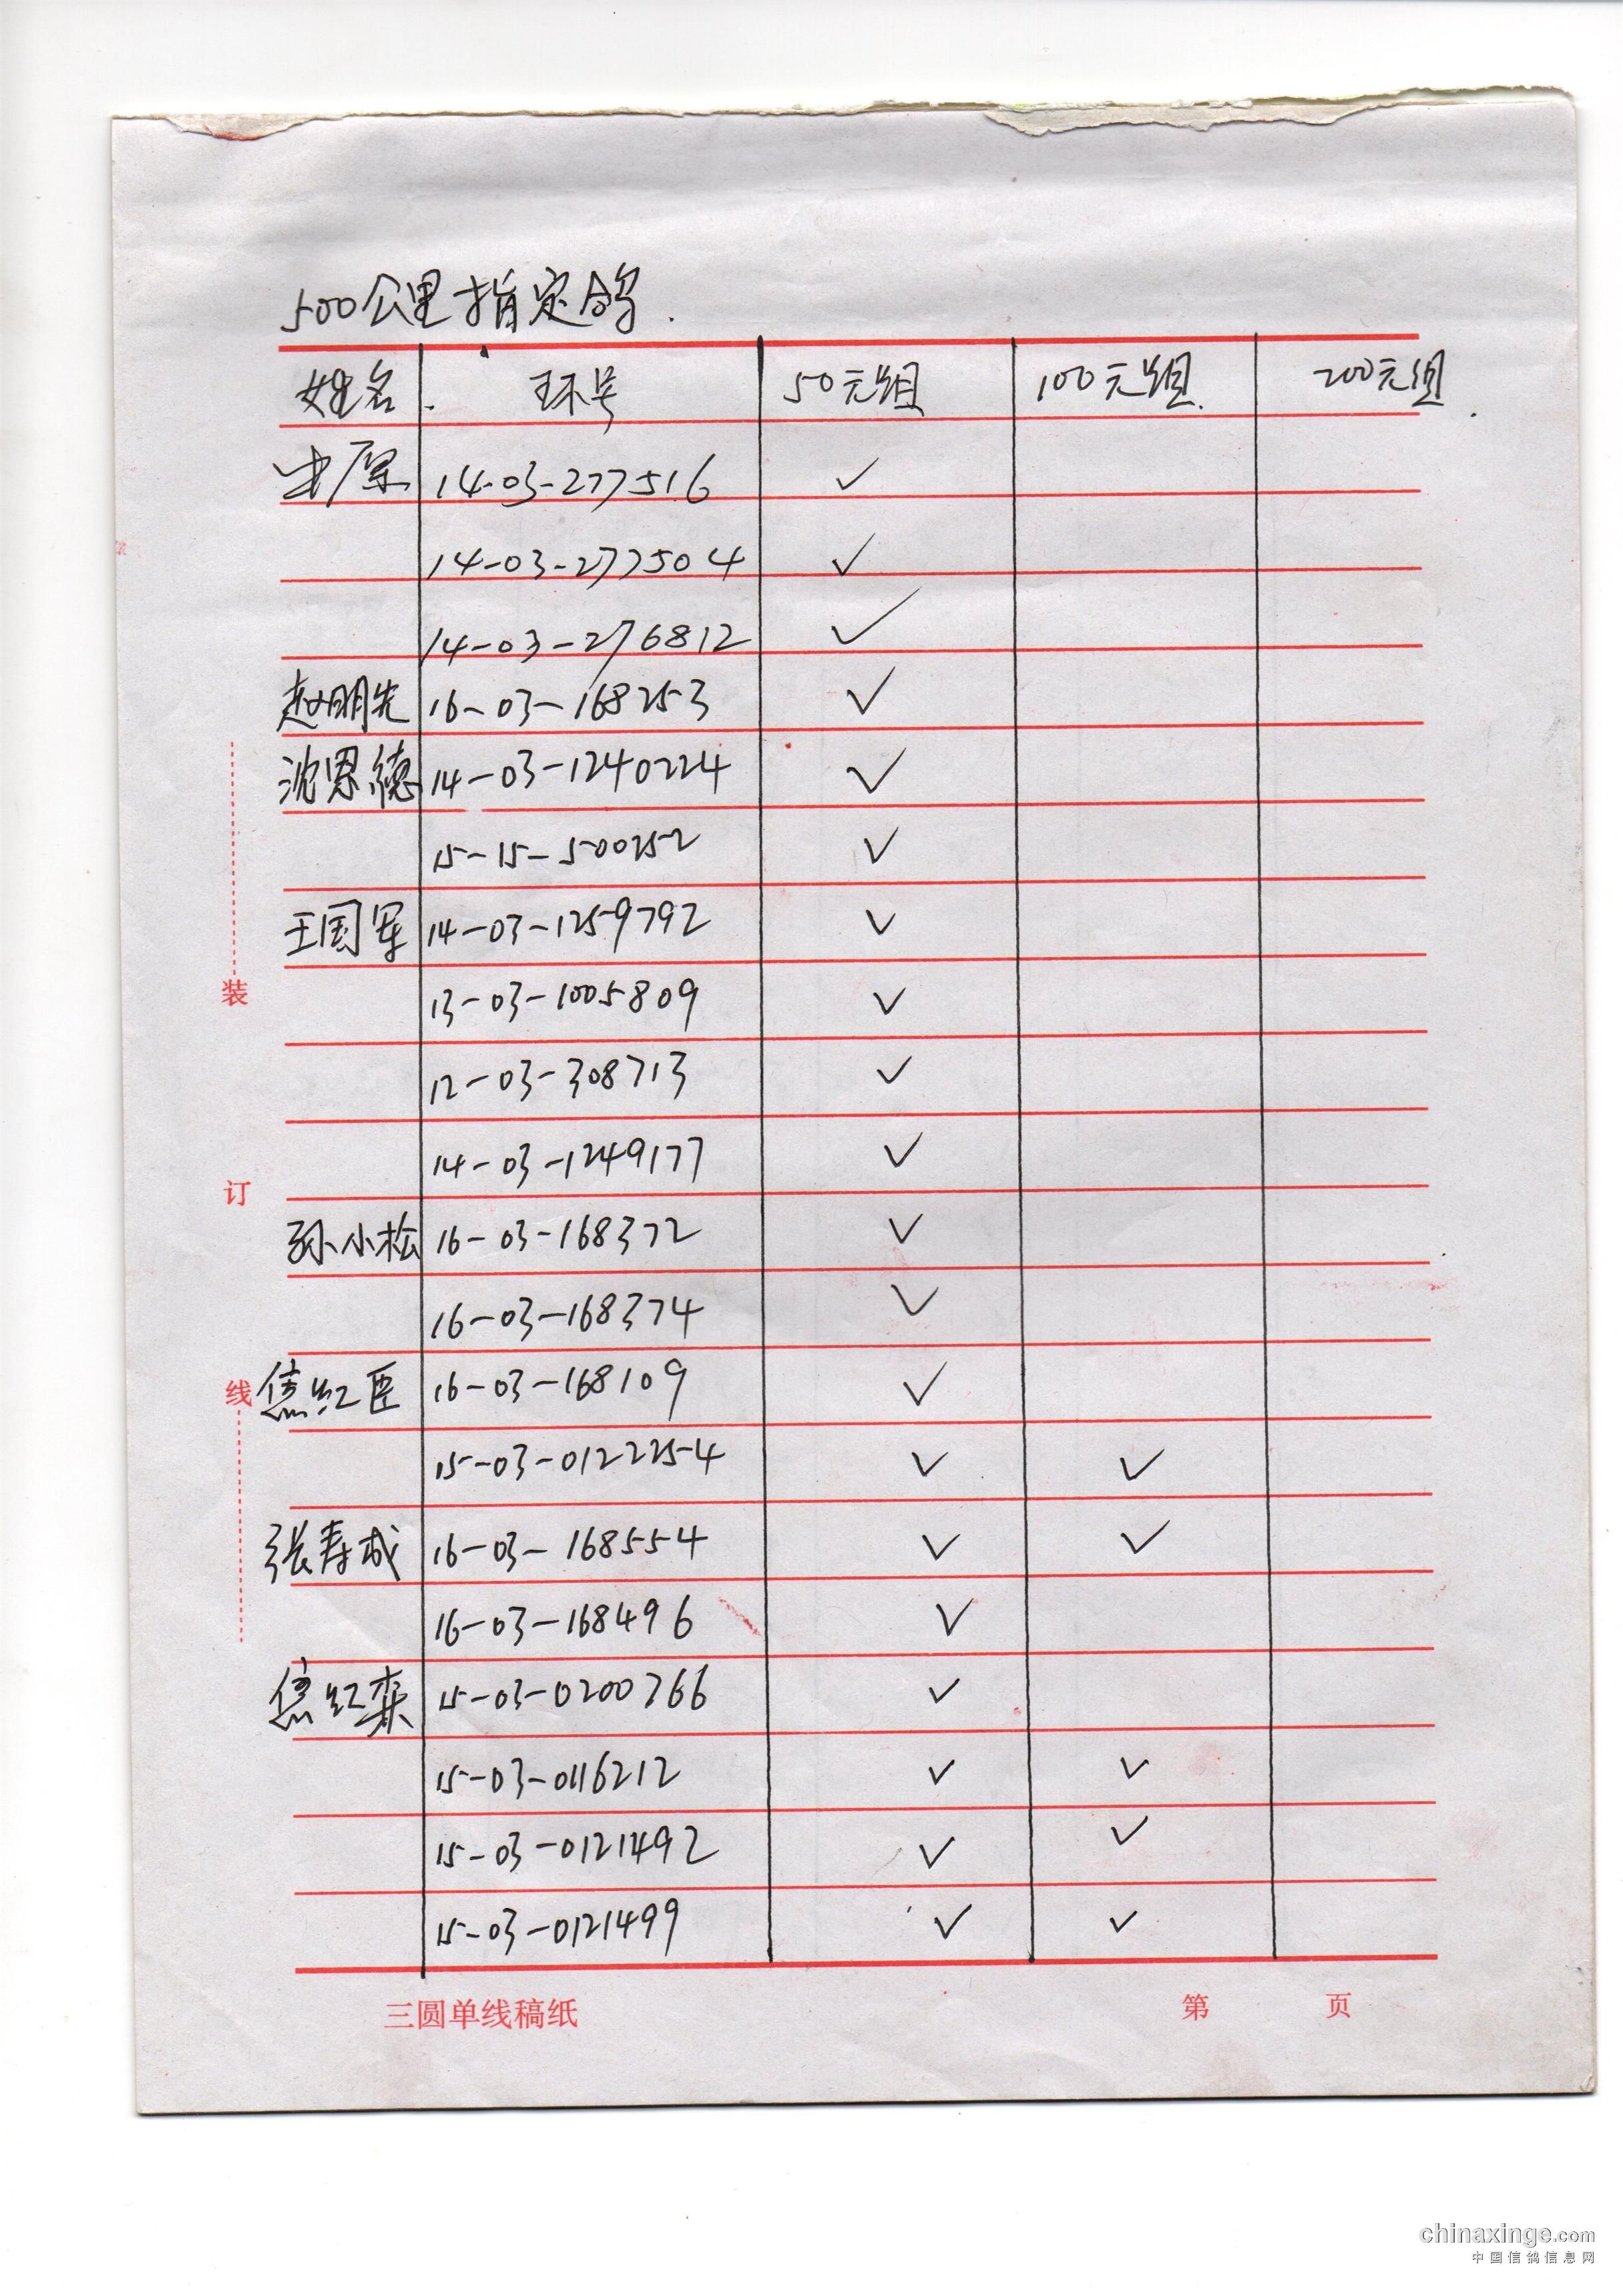 500公里指定鸽.
姓名 环号 50元组 100元组 200元组
14-03-277516 ✓
14-03-277504 ✓
14-03-276812 ✓
赵明先 16-03-168253 ✓
沈恩德 14-03-1240224 ✓
15-15-500252 ✓
王国军 14-03-1259792 ✓
13-03-1005809 ✓
12-03-308713 ✓
14-03-1249177 ✓
孙小松 16-03-168372 ✓
16-03-168374 ✓
焦红臣 16-03-168109 ✓
15-03-0122254 ✓ ✓
张寿成 16-03-168554 ✓ ✓
16-03-168496 ✓
焦红 15-03-0200766 ✓
15-03-0116212 ✓ ✓
15-03-0121492 ✓ ✓
15-03-0121499 ✓ ✓
装
订
线
三圆单线稿纸 第 页
chinaxinge.com
中国信鸽信息网